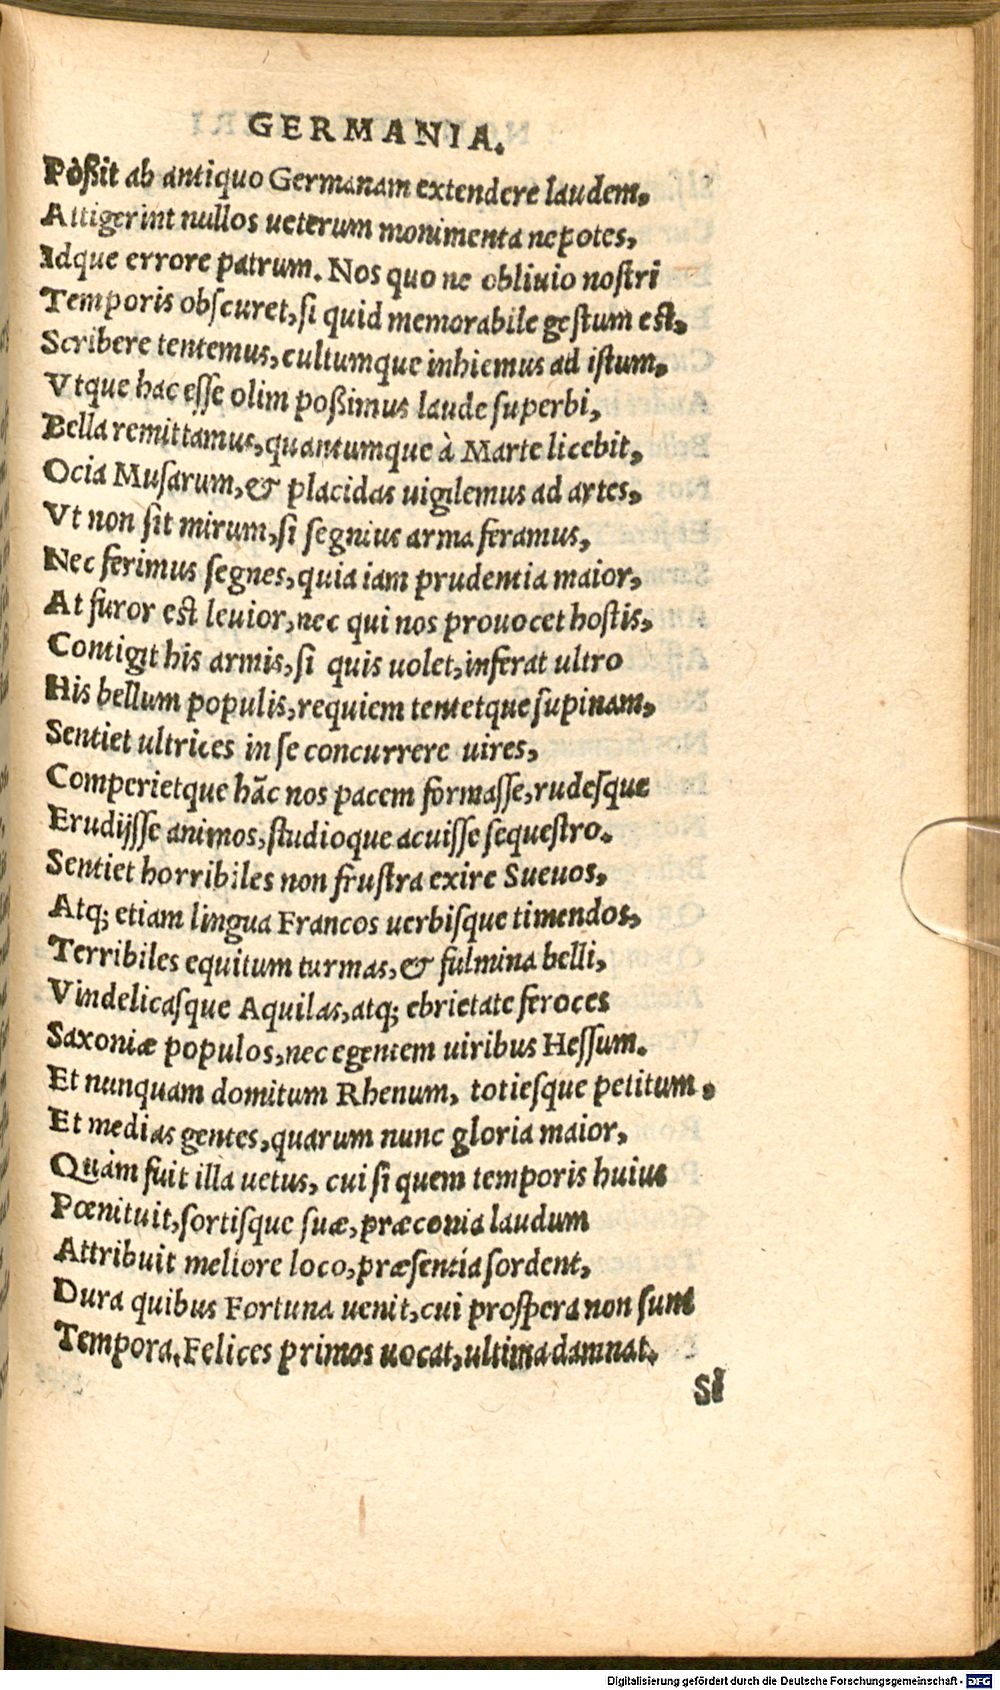 GERMANIA.
Pòßit ab antiquo Germanam extendere laudem,
Attigerint nullos ueterum monimenta nepotes,
Idque errore patrum. Nos quo ne obliuio nostri
Temporis obscuret, si quid memorabile gestum est,
Scribere tentemus, cultumque inhiemus ad istum,
Vtque hac esse olim poßimus laude superbi,
Bella remittamus, quantumque à Marte licebit,
Ocia Musarum, & placidas uigilemus ad artes,
Vt non sit mirum, si segnius arma feramus,
Nec ferimus segnes, quia iam prudentia maior,
At furor est leuior, nec qui nos prouocet hostis,
Contigit his armis, si quis uolet, inferat ultro
His bellum populis, requiem tentetque supinam,
Sentiet ultrices in se concurrere uires,
Comperietque hãc nos pacem formasse, rudesque
Erudijsse animos, studioque acuisse sequestro.
Sentiet horribiles non frustra exire Sueuos,
Atq; etiam lingua Francos uerbisque timendos,
Terribiles equitum turmas, & fulmina belli,
Vindelicasque Aquilas, atq; ebrietate feroces
Saxoniæ populos, nec egentem uiribus Hessum.
Et nunquam domitum Rhenum, totiesque petitum.
Et medias gentes, quarum nunc gloria maior,
Quàm fuit illa uetus, cui si quem temporis huius
Pœnituit, sortisque suæ, præconia laudum
Attribuit meliore loco, præsentia sordent,
Dura quibus Fortuna uenit, cui prospera non sunt
Tempora. Felices primos uocat, ultima damnat.
Si
Digitalisierung gefördert durch die Deutsche Forschungsgemeinschaft - DFG